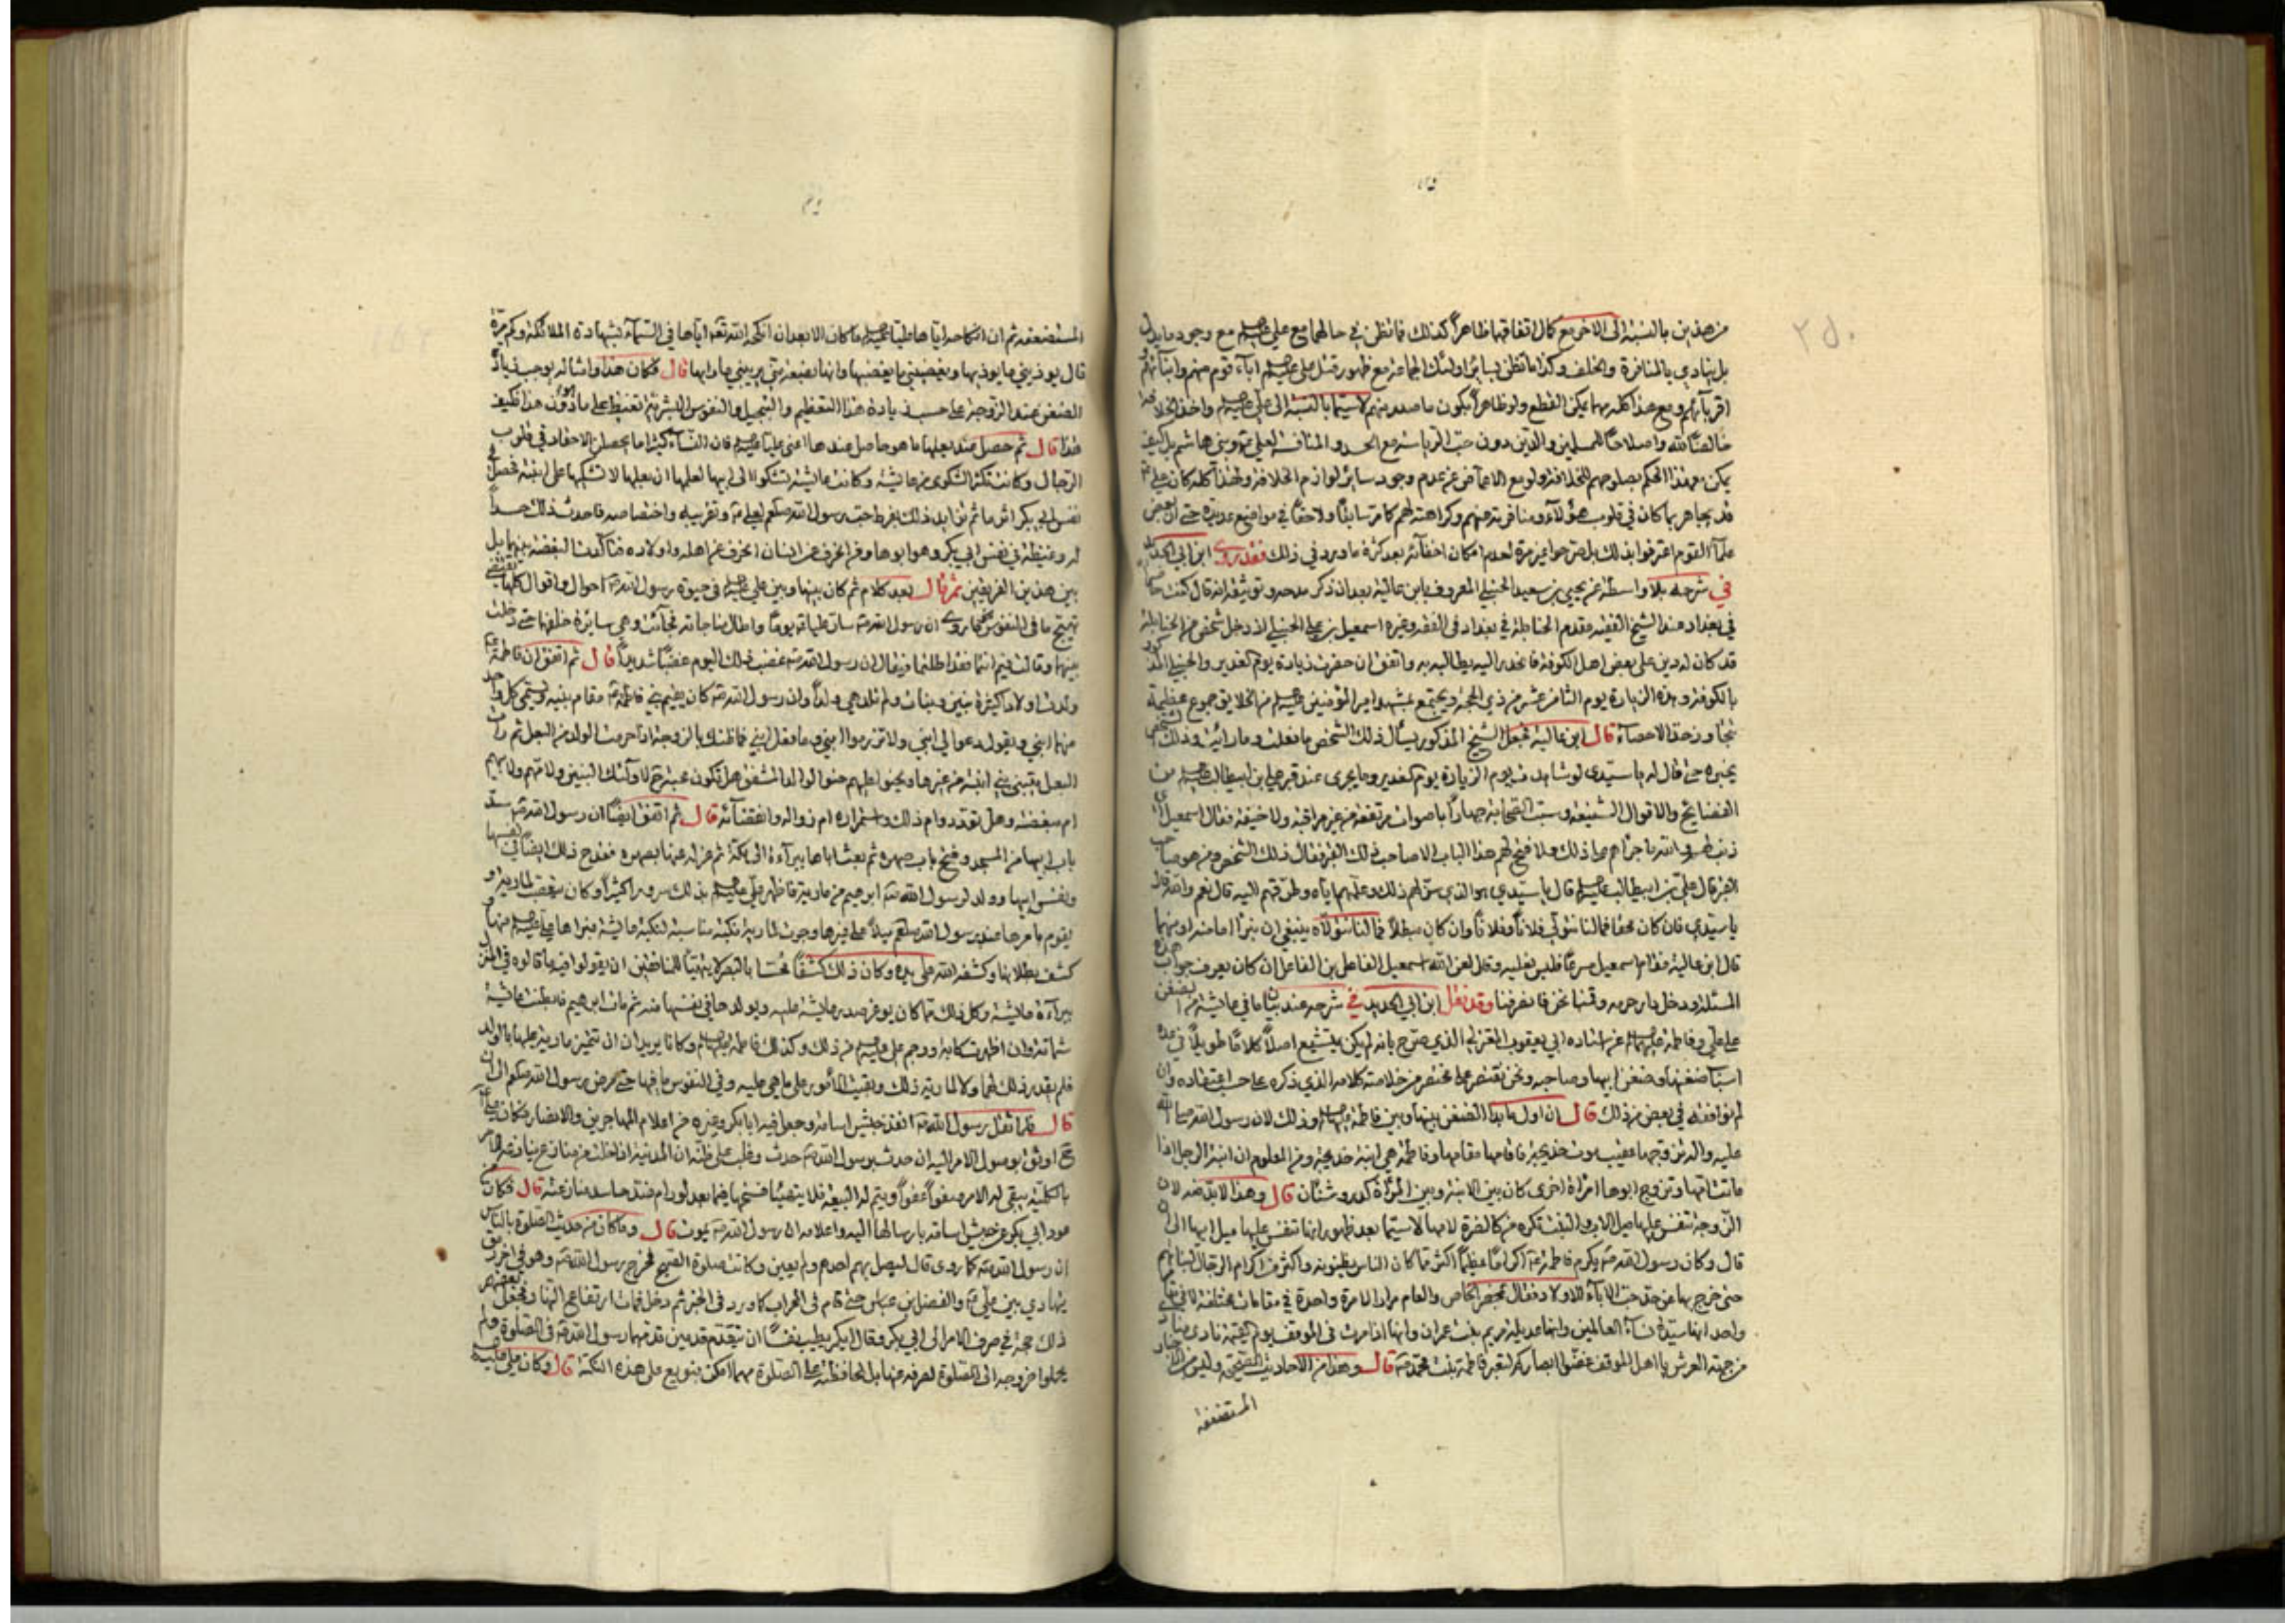 ٢٥٠
من هذين بالنسبة الى الاخر مع كمال اتفاقهما ظاهراً كذلك فما تظن في حالهما مع علي عليه السلم مع وجود ما يدل
بل ينادي بالمنافرة والخلف وكذا ما تظن بسائر اولئك الجماعة مع ظهور قتل علي عليه السلم آباء قوم منهم وابنائهم و
اقربائهم ومع هذا كله مهما يمكن القطع ولو ظاهراً بكون ما صدر منهم لا سيما بالنسبة الى علي عليه السلم واخذ الخلافة
خالصاً لله واصلاحاً للمسلمين والدين دون حب الرياسة مع الحسد والمنافسة لعلي ع وبني هاشم بل كيف
يمكن بعد هذا الحكم بصلوحهم للخلافة ولو مع الاغماض عن عدم وجود سائر لوازم الخلافة ولهذا كله كان علي ع
قد يجاهر بما كان في قلوب هؤلاء ومنافرته عنهم وكراهته لهم كما مر سابقاً ولاحقاً في مواضع عديدة حتى ان بعض
علماء القوم اعترفوا بذلك بل صرحوا غير مرة لعدم امكان اخفائه بعد كثرة ما ورد في ذلك فقد روى ابن ابي الحديد
في شرحه بلا واسطة عن يحيى بن سعيد الحنبلي المعروف بابن عالية بعد ان ذكر مدحه وتوثيقه انه قال كنت حاضراً
في بغداد عند الشيخ الفقيه مقدم الحنابلة في بغداد في الفقه وغيره اسمعيل بن علي الحنبلي اذ دخل شخص من الحنابلة
قد كان له دين على بعض اهل الكوفة فانحدر اليه يطالبه به واتفق ان حضرت زيارة يوم الغدير والحنبلي المذكور
بالكوفة وهذه الزيارة يوم الثامن عشر من ذي الحجة ويجتمع بمشهد امير المؤمنين عليه السلم من الخلايق جموع عظيمة
تتجاوز حد الاحصاء قال ابن عالية فجعل الشيخ المذكور يسأل ذلك الشخص ما فعلت وما رأيت وذلك الشخص
يخبره حتى قال له يا سيدي لو شاهدت يوم الزيارة يوم الغدير وما يجرى عند قبر علي ابن ابيطالب عليه السلم من
الفضايح والاقوال الشنيعة وسب الصحابة جهاراً باصوات مرتفعة من غير مراقبة ولا خيفة فقال اسمعيل اي
ذنب لهم والله ما جرأهم على ذلك ولا فتح لهم هذا الباب الا صاحب ذلك القبر فقال ذلك الشخص ومن هو صاحب
القبر قال علي بن ابيطالب عليه السلم قال يا سيدي هو الذي سن لهم ذلك وعلمهم اياه وطرقهم اليه قال نعم والله قال
يا سيدي فان كان محقاً فما لنا نتولى فلاناً وفلاناً وان كان مبطلاً فما لنا نتولاه ينبغي ان نبرأ اما منه او منهما
قال ابن عالية فقام اسمعيل مسرعاً فلبس نعليه وقال لعن الله اسمعيل الفاعل بن الفاعل ان كان يعرف جواب هذه
المسئلة ودخل دار حرمه وقمنا نحن فانصرفنا وقد نقل ابن ابي الحديد في شرحه عند بيان ما في عايشة من الضغن
على علي وفاطمة عليهما السلم عن استاده ابي يعقوب المعتزلي الذي صرح بانه لم يكن يتشيع اصلاً كلاماً طويلاً في عدة
اسباب ضغنها وضغن ابيها وصاحبه ونحن نقتصر على مختصر من خلاصة كلامه الذي ذكره على حسب اعتقاده وان
لم نوافقه في بعض من ذلك قال ان اول ما بدأ الضغن بينها وبين فاطمة عليها السلم وذلك لان رسول الله صلى الله
عليه واله تزوجها عقيب موت خديجة فاقامها مقامها وفاطمة هي ابنة خديجة ومن المعلوم ان ابنة الرجل اذا
ماتت امها وتزوج ابوها امرأة اخرى كان بين الابنة وبين المرأة كدر وشنآن قال وهذا لابد منه لان
الزوجة تنفس عليها ميل الاب والبنت تكره من كالضرة لامها لا سيما بعد ظهور انها تنفس عليها ميل ابيها الى
قال وكان رسول الله ص يكرم فاطمة ع اكراماً عظيماً اكثر مما كان الناس يظنونه واكثر من اكرام الرجال لبناتهم
حتى خرج بها عن حد حب الآباء للاولاد فقال بمحضر الخاص والعام مراراً لا مرة واحدة في مقامات مختلفة لا في مقام
واحد انها سيدة نساء العالمين وانها عديلة مريم بنت عمران وانها اذا مرت في الموقف يوم القيمة نادى مناد
من جهة العرش يا اهل الموقف غضوا ابصاركم لتعبر فاطمة بنت محمد ص قال وهذا من الاحاديث الصحيحة وليس من الاخبار
المستضعفة
المستضعفة ثم ان انكاحه اياها علياً عليه السلم ما كان الا بعد ان انكحه الله تعالى اياها في السماء بشهادة الملائكة وكم مرة
قال يؤذيني ما يؤذيها ويغضبني ما يغضبها وانها بضعة مني يريبني ما رابها قال فكان هذا وامثاله يوجب زيادة
الضغن عند الزوجة على حسب زيادة هذا التعظيم والتبجيل والنفوس البشرية تغتبط على ما هو دون هذا فكيف
هذا قال ثم حصل عند بعلها ما هو حاصل عندها اعني علياً عليه السلم فان النساء كثيراً ما يحصل الاحقاد في قلوب
الرجال وكانت تكثر الشكوى من عايشة وكانت عايشة تشكوا الى ابيها لعلمها ان بعلها لا تشكيها على ابنته فحصل في
نفس ابي بكر اثر ما ثم تزايد ذلك بفرط حب رسول الله صلعم لعلي ع وتقريبه واختصاصه فاحدث ذلك حسداً
له وغيظة في نفس ابي بكر وهو ابوها وفي انحرف عن انسان انحرف عن اهله واولاده فتأكدت البغضة بينهما بل
بين هذين الفريقين ثم قال بعد كلام ثم كان بينها وبين علي عليه السلم في حيوة رسول الله ص احوال واقوال كلها تقتضي
تهيج ما في النفوس كما روى ان رسول الله ص ساير علياً ع يوماً واطال مناجاته فجائت وهي سايرة خلفهما حتى دخلت
بينهما وقالت فيم انتما فقد اطلتما فيقال ان رسول الله ص غضب ذلك اليوم غضباً شديداً قال ثم اتفق ان فاطمة ع
ولدت اولاداً كثيرة بنين وبنات ولم تلد هي ولداً وان رسول الله ص كان يقيم بني فاطمة ع مقام بنيه ويسمي كل واحد
منهما ابني ويقول دعوا لي ابني ولا تزرموا ابني وما فعل ابني فما ظنك بالزوجة اذا حرمت الولد من البعل ثم رأت
البعل يتبنى بني ابنته من غيرها ويحنوا عليهم حنوا الوالد المشفق هل تكون محبة لاولئك البنين ولامهم ولابيهم
ام مبغضة وهل تود دوام ذلك واستمراره ام زواله وانقضائه قال ثم اتفق ايضاً ان رسول الله ص سد
باب ابيها من المسجد وفتح باب صهره ثم بعث اباها ببراءة الى مكة ثم عزله عنها بصهره فقدح ذلك ايضاً في نفسها
ونفس ابيها وولد لرسول الله ص ابرهيم من مارية فاظهر علي عليه السلم بذلك سروراً كثيراً وكان يتعصب لمارية و
يقوم بامرها عند رسول الله صلعم ميلاً على غيرها وجرت لمارية نكبة مناسبة لنكبة عايشة فبرأها علي عليه السلم منها و
كشف بطلانها وكشفه الله على يده وكان ذلك كشفاً محساً بالبصر لا يتهيأ للمنافقين ان يقولوا فيه ما قالوه في المنزل
ببراءة عايشة وكل ذلك مما كان يوغر صدر عايشة عليه ويولد حافي نفسها منه ثم مات ابرهيم فابطنت عايشة
شماتة وان اظهرت كآبة ووجم علي عليه السلم من ذلك وكذلك فاطمة عليها السلم وكانا يريدان ان تتميز مارية عليها بالولد
فلم يقدر ذلك لهما ولا لمارية ذلك وبقيت الامور على ما هي عليه وفي النفوس ما فيها حتى مرض رسول الله صلعم الى ان
قال فلما ثقل رسول الله ص انفذ جيش اسامة وجعل فيه ابا بكر وغيره من اعلام المهاجرين والانصار فكان علي ع
ح اوثق بوصول الامر اليه ان حدث برسول الله ص حدث وغلب على ظنه ان المدينة اذا خلت من منازع ينازعه الامر
بالكلية يبقى له الامر صفواً عفواً ويتم له البيعة فلا يتهيأ فسخها فيما بعد لو رام ضد حاسد منازعته قال فكان من
عود ابي بكر من جيش اسامة بارسالها اليه واعلامه ان رسول الله ص يموت قال وما كان من حديث الصلوة بالناس
ان رسول الله ص كما روى قال ليصل بهم احدهم ولم يعين وكانت صلوة الصبح فخرج رسول الله ص وهو في اخر رمق
يتهادى بين علي ع والفضل بن عباس حتى قام في المحراب كما ورد في الخبر ثم دخل فمات ارتفاع النهار فجعل بعضهم
ذلك حجة في صرف الامر الى ابي بكر وقال ايكم يطيب نفساً ان يتقدم قدمين قدمهما رسول الله ص في الصلوة ولم
يحملوا خروجه الى الصلوة لصرفه عنها بل المحافظة على الصلوة مهما امكن فبويع على هذه النكتة قال وكان علي عليه السلم